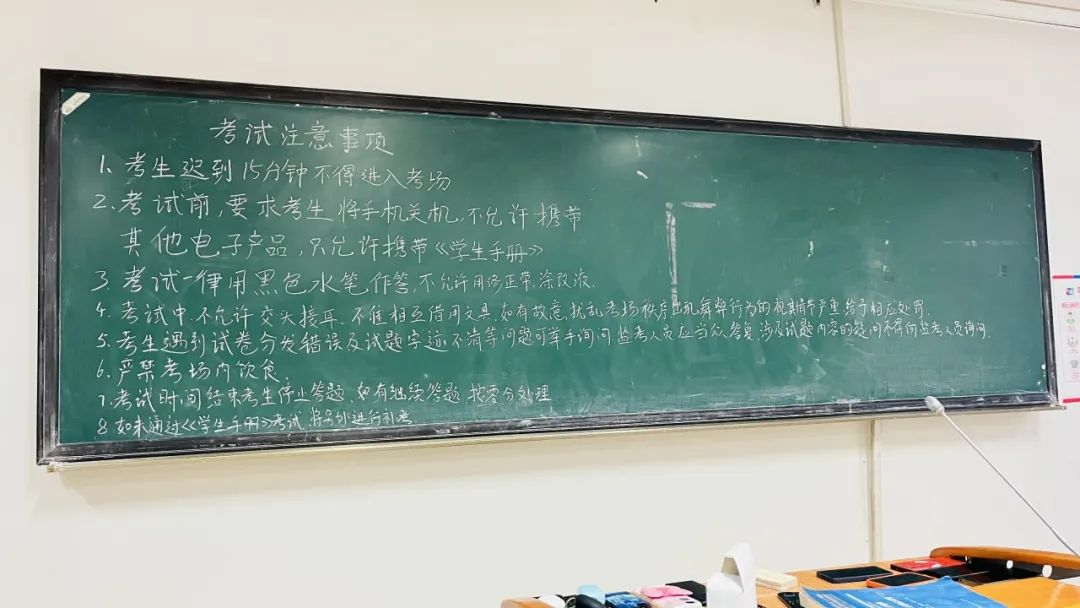 考试注意事项
1、考生迟到15分钟不得进入考场
2、考试前,要求考生将手机关机,不允许携带
其他电子产品,只允许携带《学生手册》
3、考试一律用黑色水笔作答,不允许用修正带,涂改液.
4、考试中,不允许交头接耳、不准相互借用文具.如有故意,扰乱考场秩序出现舞弊行为的视其情节严重给予相应处罚.
5、考生遇到试卷分发错误及试题字迹不清等问题可举手询问,监考人员应当众答复,涉及试题内容的疑问不得向监考人员询问.
6、严禁考场内饮食.
7、考试时间结束考生停止答题.如有继续答题,按零分处理
8、如未通过《学生手册》考试,将另外进行补考